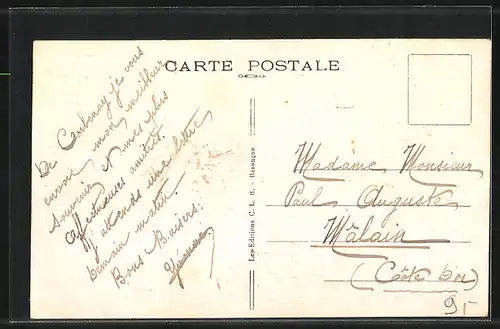 CARTE POSTALE
De Carbonay je vous
envoie mon meilleur
Souvenir & mes plus
affectueuses amitiés
J'attends une lettre
Demain matin.
Bons Baisers.
Yvonne
Les Editions C. L. B. - Besançon
Madame Monsieur
Paul Auguste
Mâlain
(Côte d'or)
9,-